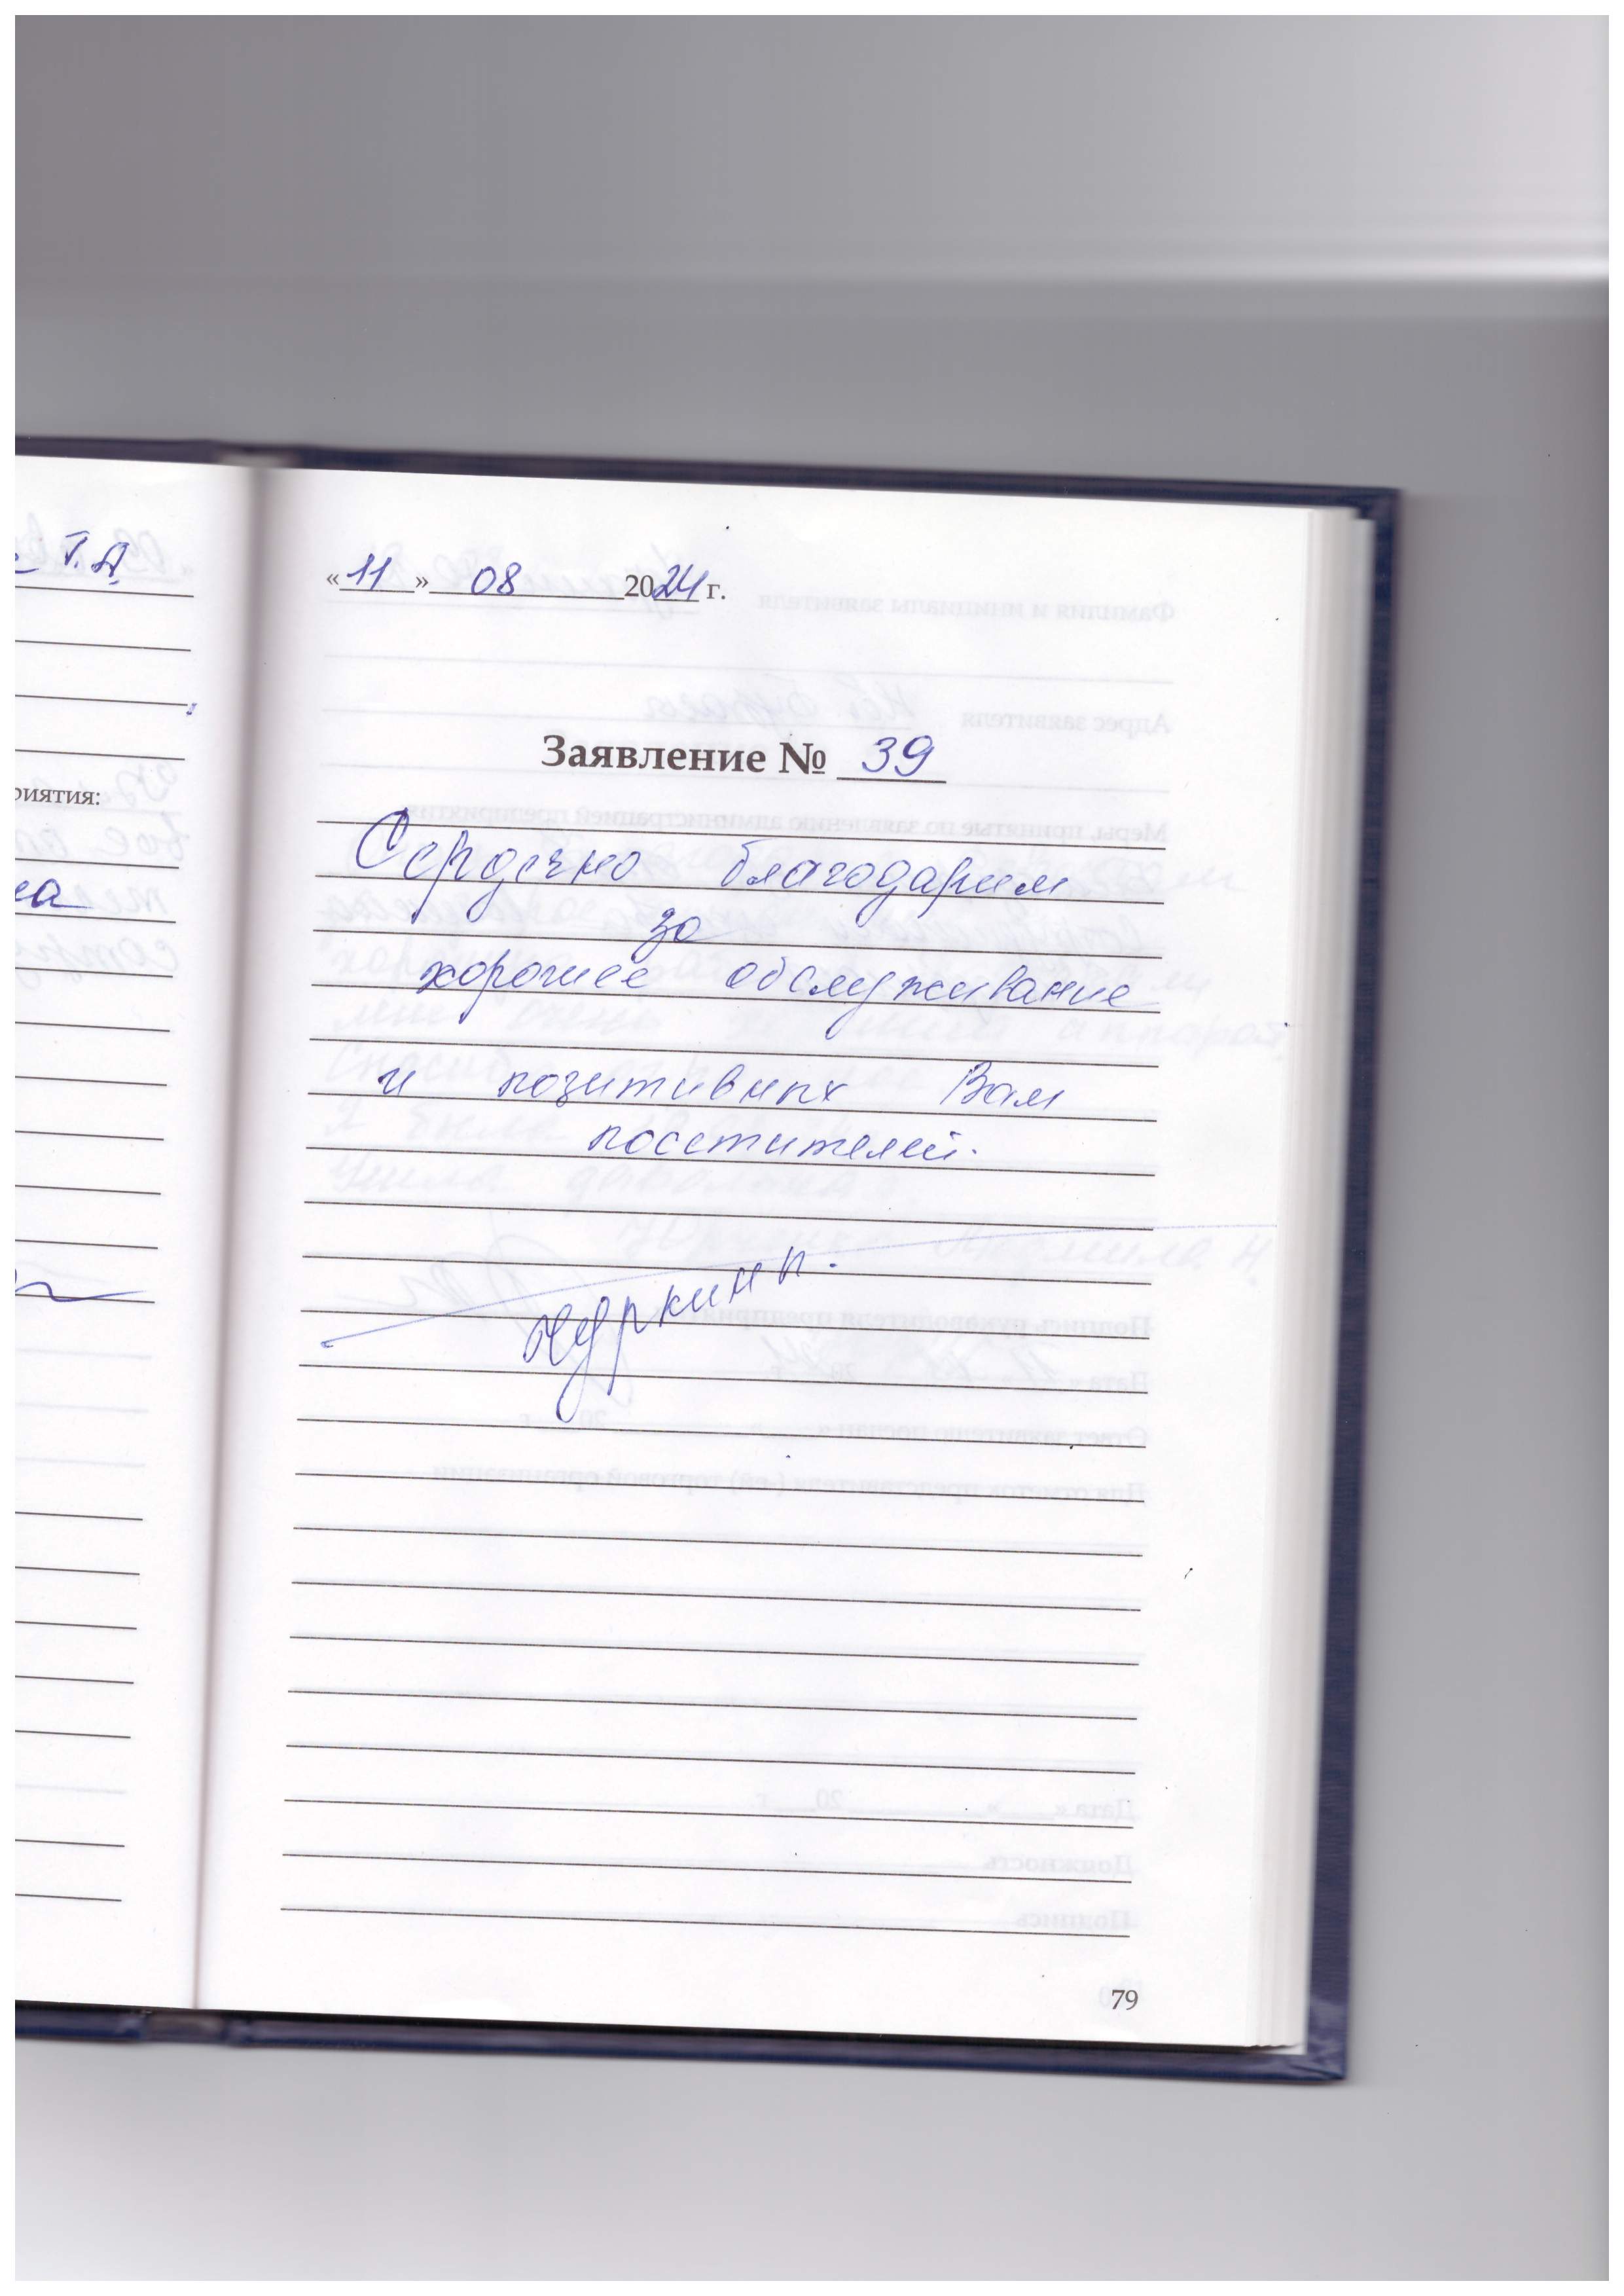 Т.А.
риятия:
«11» 08 2024 г.
Заявление № 39
Сердечно благодарим
за
хорошее обслуживание
и позитивных Вам
посетителей.
79